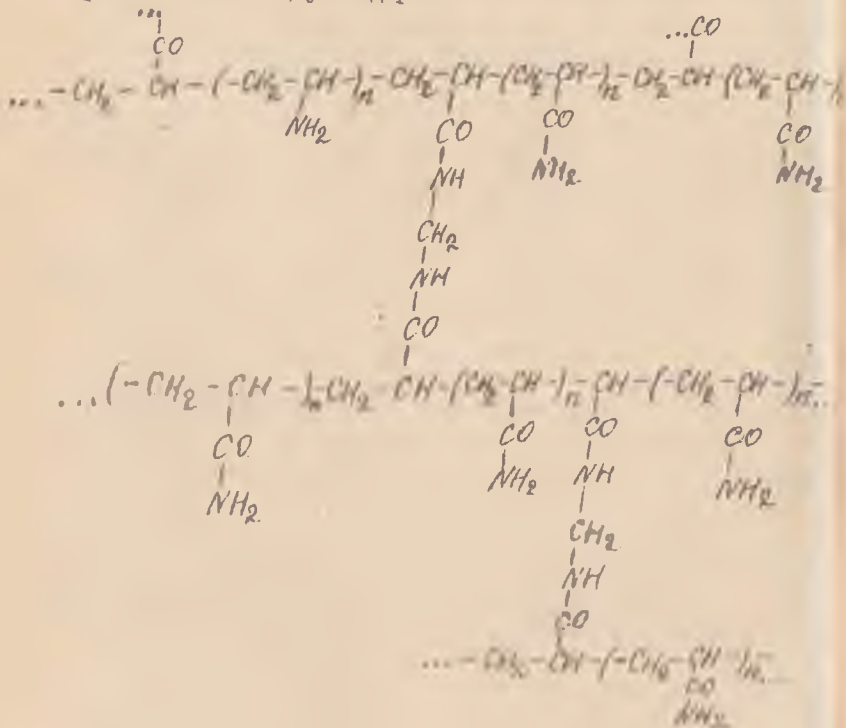 ...
CO ...CO
...-CH2 - CH - (-CH2 - CH -)n - CH2 - CH - (CH2 - CH -)n - CH2 - CH (CH2 - CH -)
NH2 CO CO CO
NH NH2 NH2
CH2
NH
CO
...(-CH2 - CH -)n CH2 - CH - (CH2 - CH -)n - CH - (-CH2 - CH -)n...
CO CO CO CO
NH2 NH2 NH NH2
CH2
NH
CO
...- CH2 - CH - (-CH2 - CH -)n...
CO
NH2